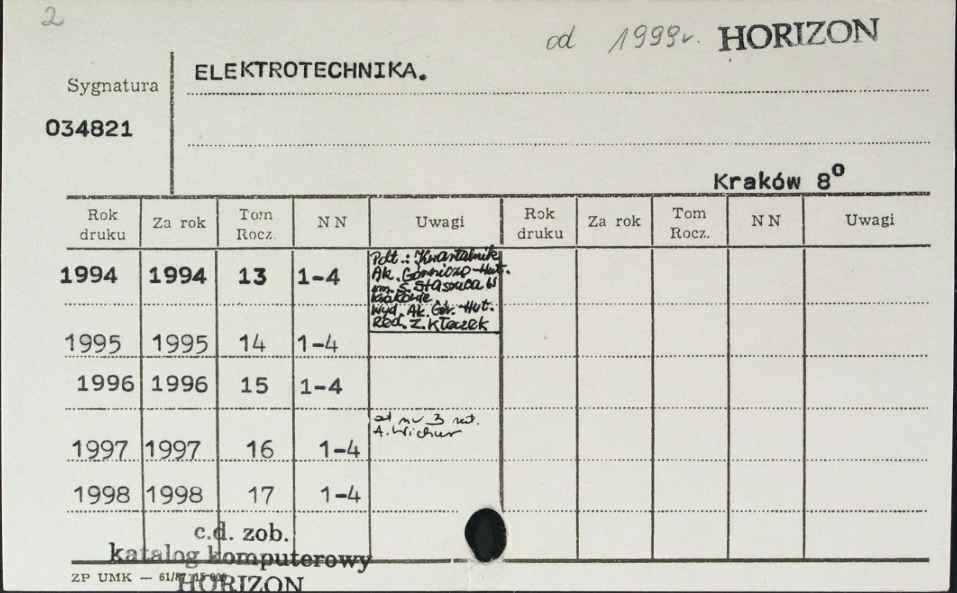 2
od 1999r. HORIZON
ELEKTROTECHNIKA.
Sygnatura
034821
Kraków 8°
Rok druku Za rok Tom Rocz. N N Uwagi Rok druku Za rok Tom Rocz. N N Uwagi
1994 1994 13 1-4
Podt.: Kwartalnik
Ak. Górniczo-Hut.
im. S. Staszica w
Krakowie
Wyd. Ak. Gór.-Hut.
Red. Z. Kłeczek
1995 1995 14 1-4
1996 1996 15 1-4
od nr 3 red.
A. Wichur
1997 1997 16 1-4
1998 1998 17 1-4
c.d. zob.
katalog komputerowy
HORIZON
ZP UMK — 61/